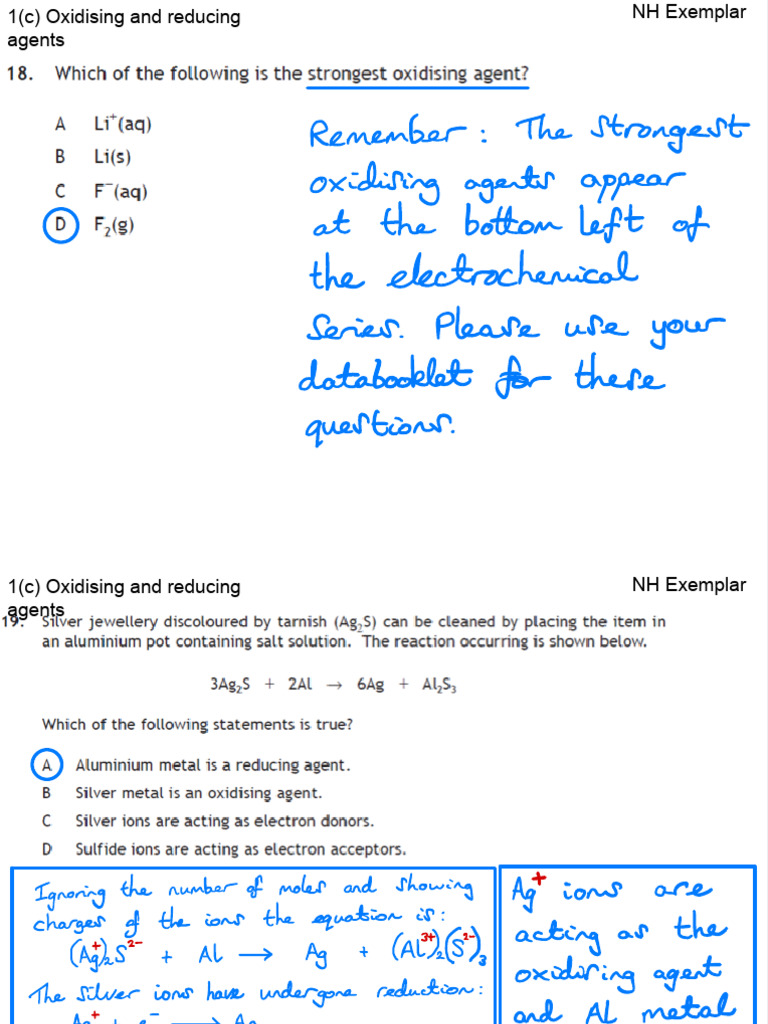 1(c) Oxidising and reducing
agents
NH Exemplar
18. Which of the following is the strongest oxidising agent?
A Li⁺(aq)
B Li(s)
C F⁻(aq)
D F₂(g)
Remember: The strongest
oxidising agents appear
at the bottom left of
the electrochemical
series. Please use your
databooklet for these
questions.
1(c) Oxidising and reducing
agents
NH Exemplar
19. Silver jewellery discoloured by tarnish (Ag₂S) can be cleaned by placing the item in
an aluminium pot containing salt solution. The reaction occurring is shown below.
3Ag₂S + 2Al → 6Ag + Al₂S₃
Which of the following statements is true?
A Aluminium metal is a reducing agent.
B Silver metal is an oxidising agent.
C Silver ions are acting as electron donors.
D Sulfide ions are acting as electron acceptors.
Ignoring the number of moles and showing
charges of the ions the equation is:
(Ag⁺)₂S²⁻ + Al → Ag + (Al³⁺)₂(S²⁻)₃
The silver ions have undergone reduction:
Ag⁺ + e⁻ → Ag
Ag⁺ ions are
acting as the
oxidising agent
and Al metal